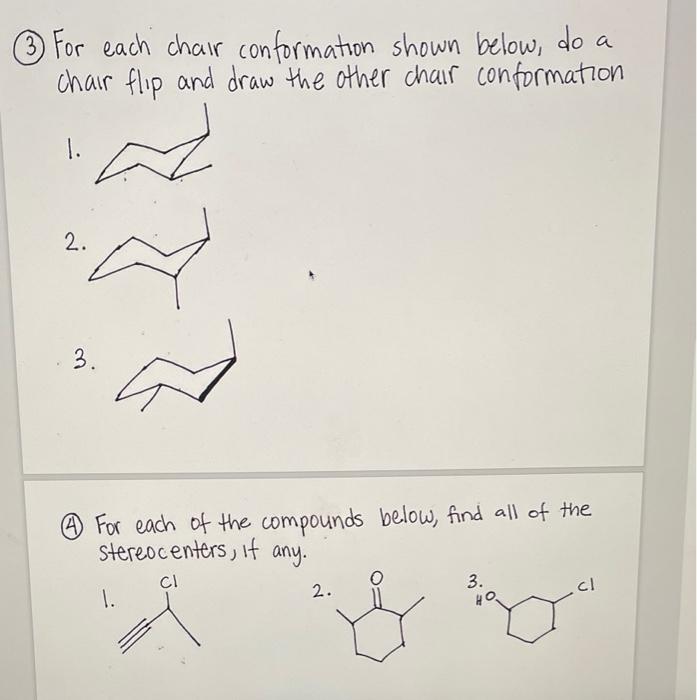 ③ For each chair conformation shown below, do a
chair flip and draw the other chair conformation
1.
2.
3.
④ For each of the compounds below, find all of the
stereocenters, if any.
1. Cl
2. O
3. HO Cl